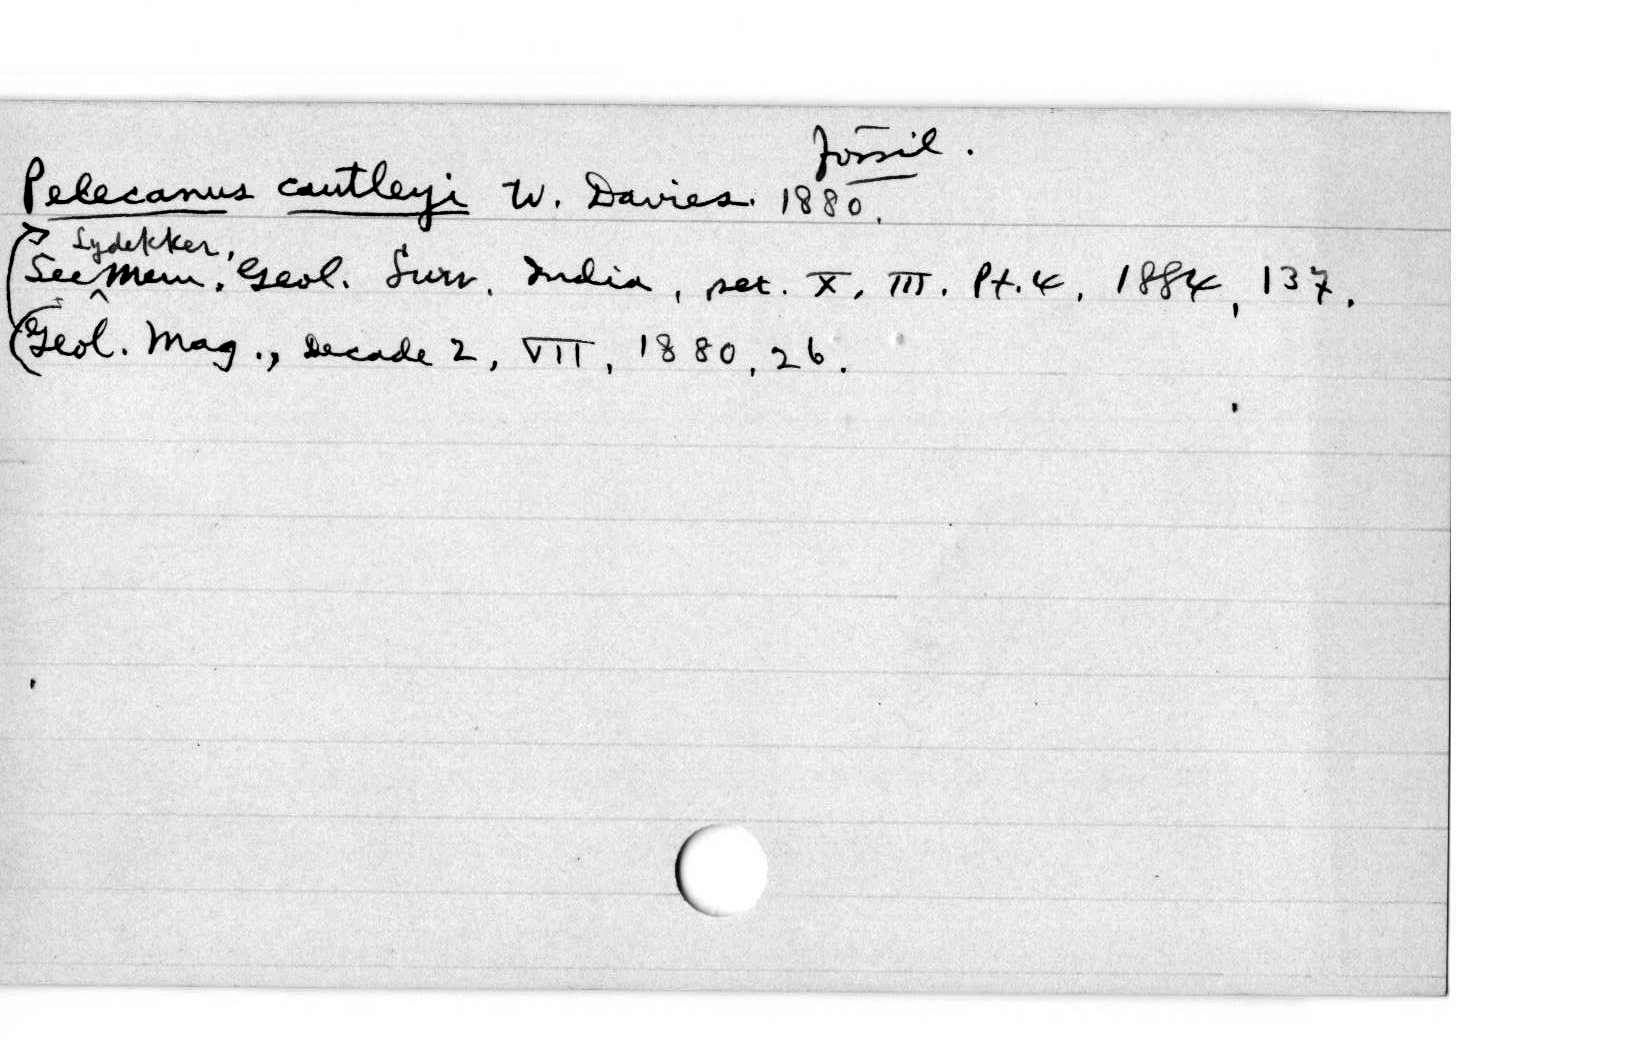 Fossil.
Pelecanus cautleyi W. Davies. 1880.
Lydekker,
See Mem. Geol. Surv. India, ser. X, III. Pt. 4, 1884, 137.
Geol. Mag., Decade 2, VII, 1880, 26.